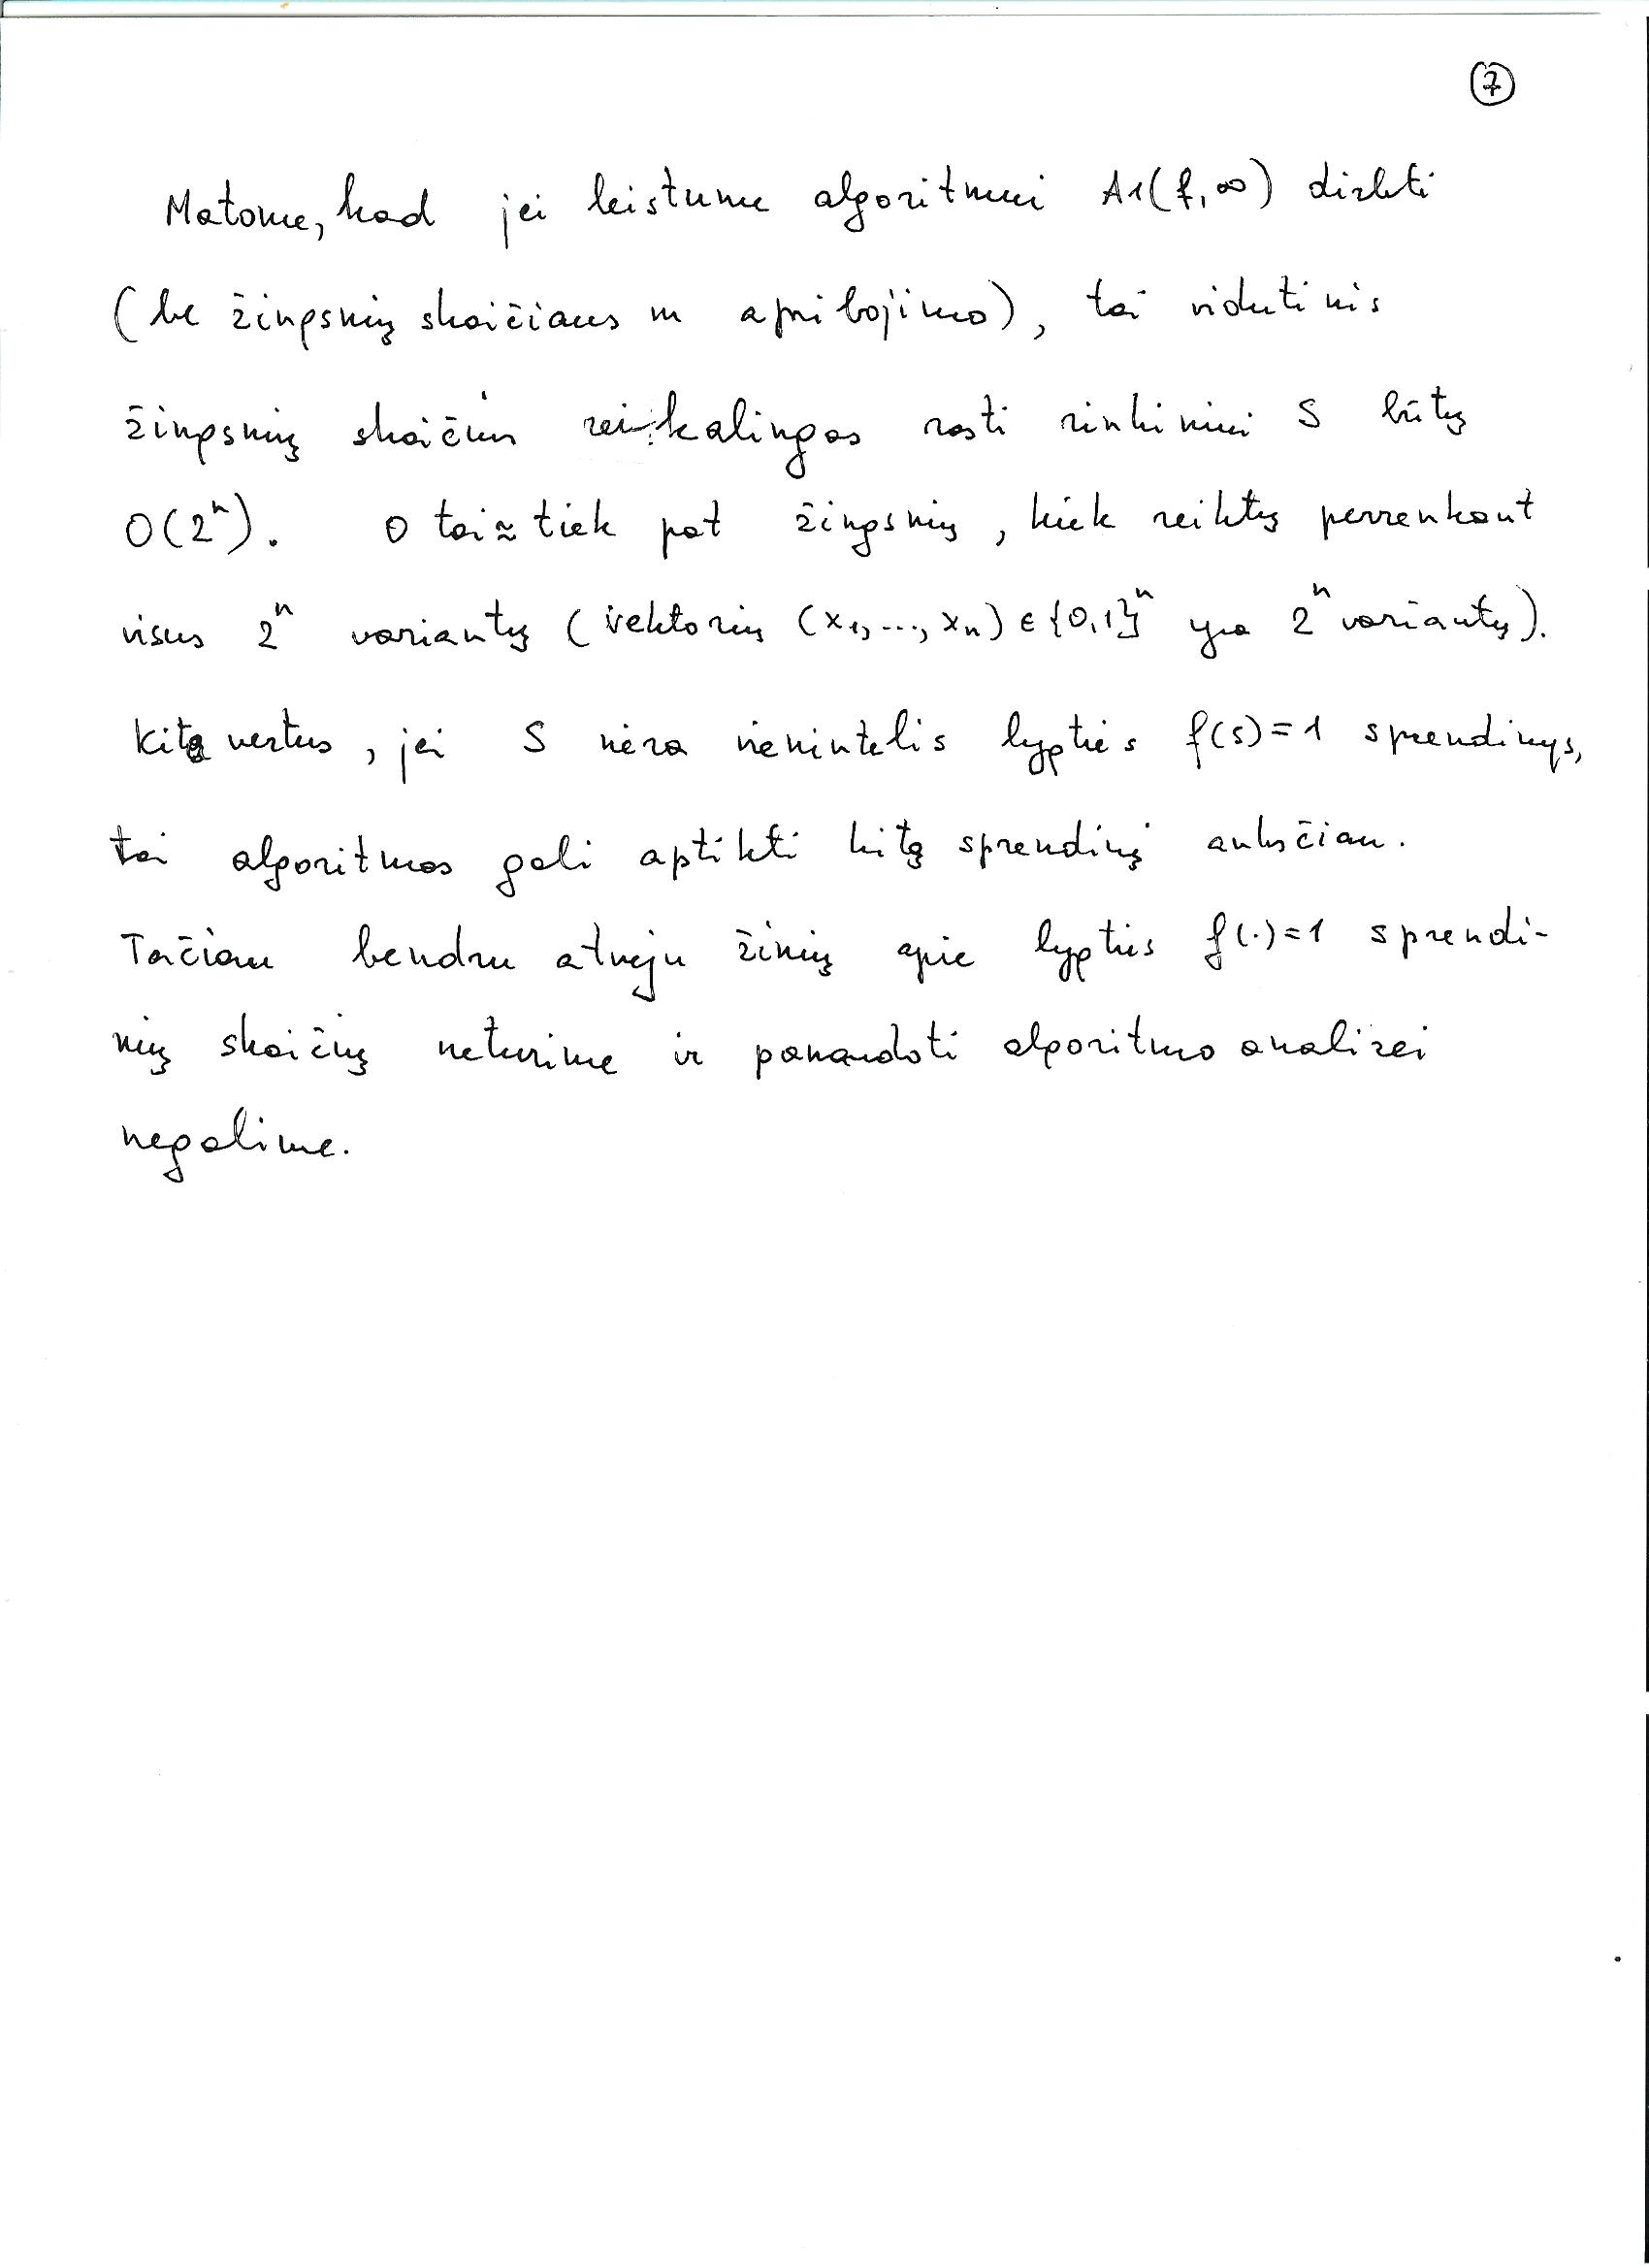 7
Matome, kad jei leistume algoritmui A1(f,∞) dirbti
(be žingsnių skaičiaus m apribojimo), tai vidutinis
žingsnių skaičius reikalingas rasti rinkiniui S būtų
O(2ⁿ). O tai ≈ tiek pat žingsnių, kiek reiktų perrenkant
visus 2ⁿ variantų (vektorių (x₁,...,xₙ) ∈ {0,1}ⁿ yra 2ⁿ variantų).
Kita vertus, jei S nėra vienintelis lygties f(s)=1 sprendinys,
tai algoritmas gali aptikti kitą sprendinį anksčiau.
Tačiau bendru atveju žinių apie lygties f(·)=1 sprendi-
nių skaičių neturime ir panaudoti algoritmo analizei
negalime.